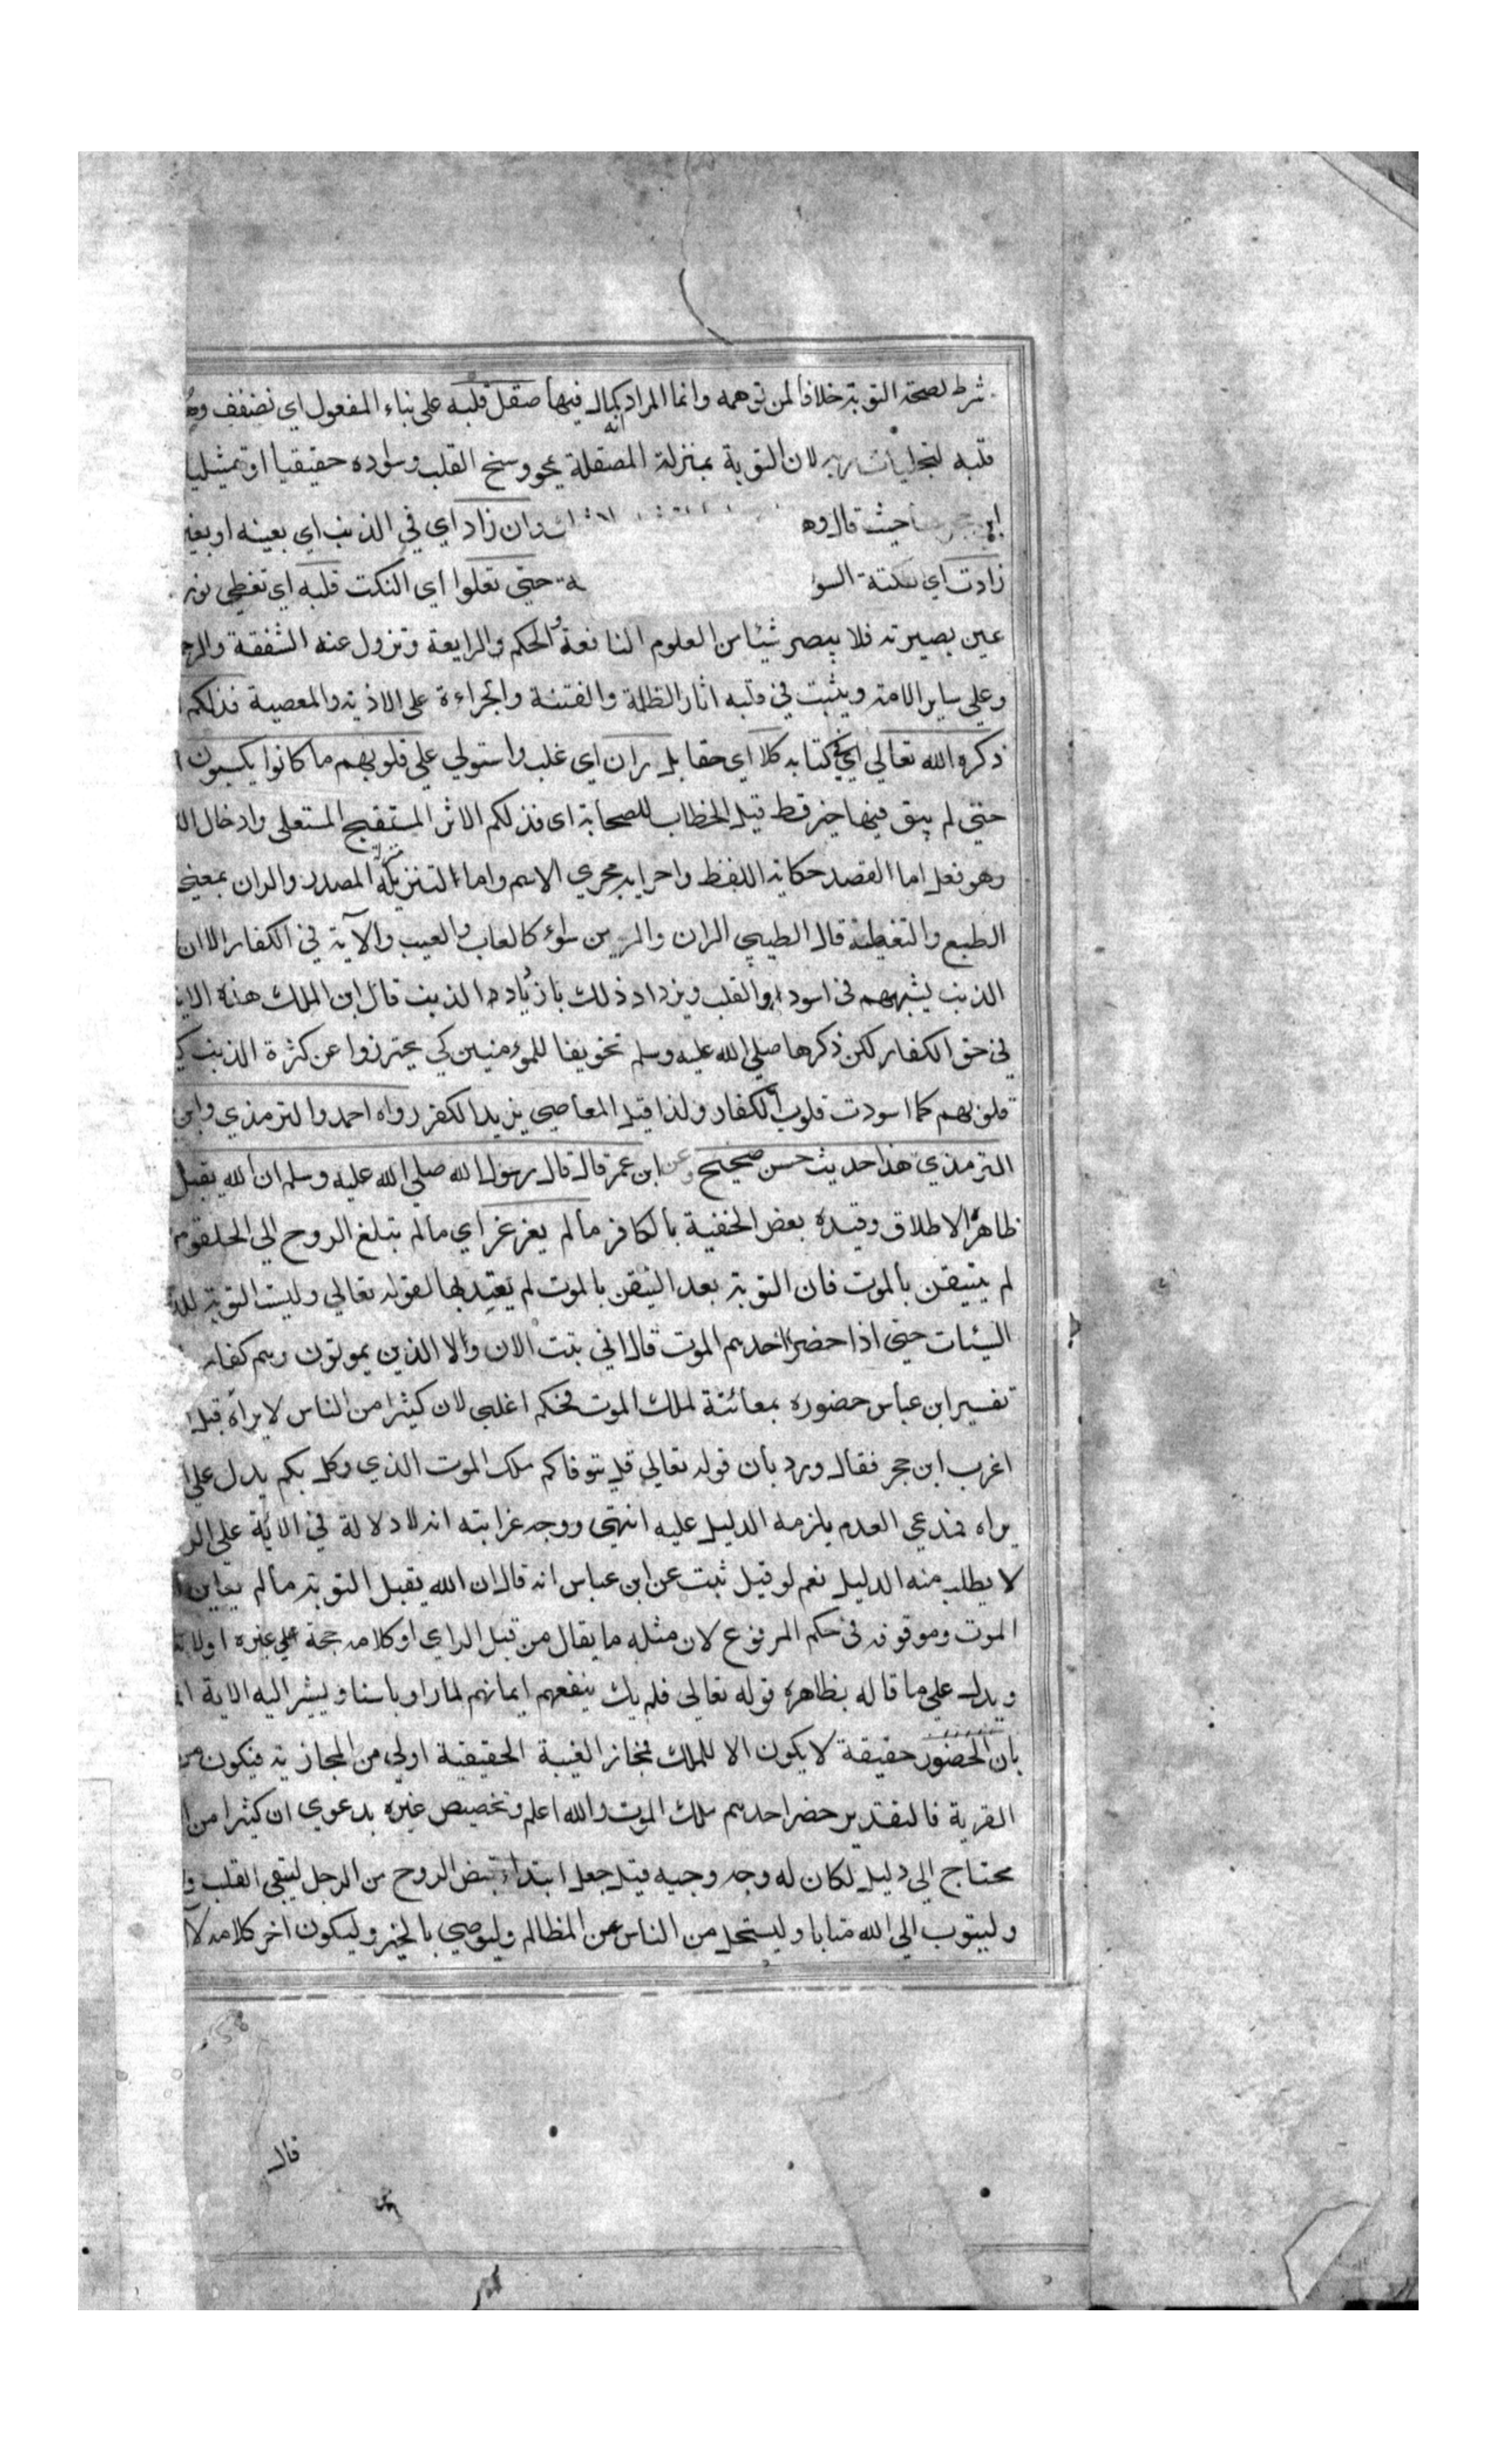 شرط لصحة التوبة خلافا لمن توهمه وانما المراد كماله فيها صقل قلبه على بناء المفعول اي نضفف
قلبه لتجليات ربه لان التوبة بمنزلة المصقلة يمحو وسخ القلب وسواده حقيقيا او تمثيليا
حيث قال وان زاد اي في الذنب اي بعينه او بغير
زادت اي نكتة السو ة حتى تعلوا اي النكت قلبه اي تغطي نور
عين بصيرته فلا يبصر شيئا من العلوم النافعة والحكم والرايعة وتزول عنه الشفقة
وعلى ساير الامة ويثبت في قلبه اثار الظلمة والفتنة والجراءة على الاذية والمعصية فذلكم
ذكره الله تعالى اي في كتابه كلا اي حقا بل ران اي غلب واستولي على قلوبهم ما كانوا يكسبون
حتى لم يبق فيها خير قط قيل الخطاب للصحابة اى فذلكم الاثر المستقبح المستعلى وادخال
وهو فعل اما القصد حكاية اللفظ واجرايه مجري الاسم واما لتنزيله المصدر والران بمعنى
الطبع والتغطية قال الطيبي الران والرين سواء كالعاب والعيب والآية في الكفار الا ان
الذنب يشبههم في اسوداد القلب ويزداد ذلك بازدياد الذنب قال ابن الملك هذه الاية
في حق الكفار لكن ذكرها صلى الله عليه وسلم تخويفا للمؤمنين كي يحترزوا عن كثرة الذنب
قلوبهم كما اسودت قلوب الكفار ولذا قيل المعاصي بريد الكفر رواه احمد والترمذي
الترمذي هذا حديث حسن صحيح وعن ابن عمر قال قال رسول الله صلى الله عليه وسلم ان الله يقبل
ظاهره الاطلاق وقيده بعض الحنفية بالكافر ما لم يغرغر اي ما لم تبلغ الروح الى الحلقوم
لم يتيقن بالموت فان التوبة بعد التيقن بالموت لم يعتد بها لقوله تعالى وليست التوبة
السيئات حتى اذا حضر احدهم الموت قال اني تبت الان ولا الذين يموتون وهم كفار
تفسير ابن عباس حضوره بمعائنة لملك الموت فحكم اغلبي لان كثيرا من الناس لا يراه قيل
اغرب ابن حجر فقال ورد بان قوله تعالى قل يتوفاكم ملك الموت الذي وكل بكم يدل على
يراه فمدعي العدم يلزمه الدليل عليه انتهى ووجه غرابته انه لا دلالة في الاية على
لا يطلب منه الدليل نعم لو قيل ثبت عن ابن عباس انه قال ان الله يقبل التوبة ما لم يعاين
الموت وموقوفه في حكم المرفوع لان مثله ما يقال من قبل الراي او كلامه حجة على غيره
ويدل على ما قاله بظاهره قوله تعالى فلم يك ينفعهم ايمانهم لما راوا باسنا ويشير اليه الاية
بان الحضور حقيقة لا يكون الا للملك فمجاز الغيبة الحقيقية اولى من المجازية فيكون
القرية فالتقدير حضر احدهم ملك الموت والله اعلم وتخصيص غيره بدعوي ان كثيرا من
محتاج الى دليل لكان له وجه وجيه قيل جعل ابتداء قبض الروح من الرجل ليبقى القلب
وليتوب الى الله متابا وليستحل من الناس عن المظالم وليوصي بالخير وليكون اخر كلامه
قال